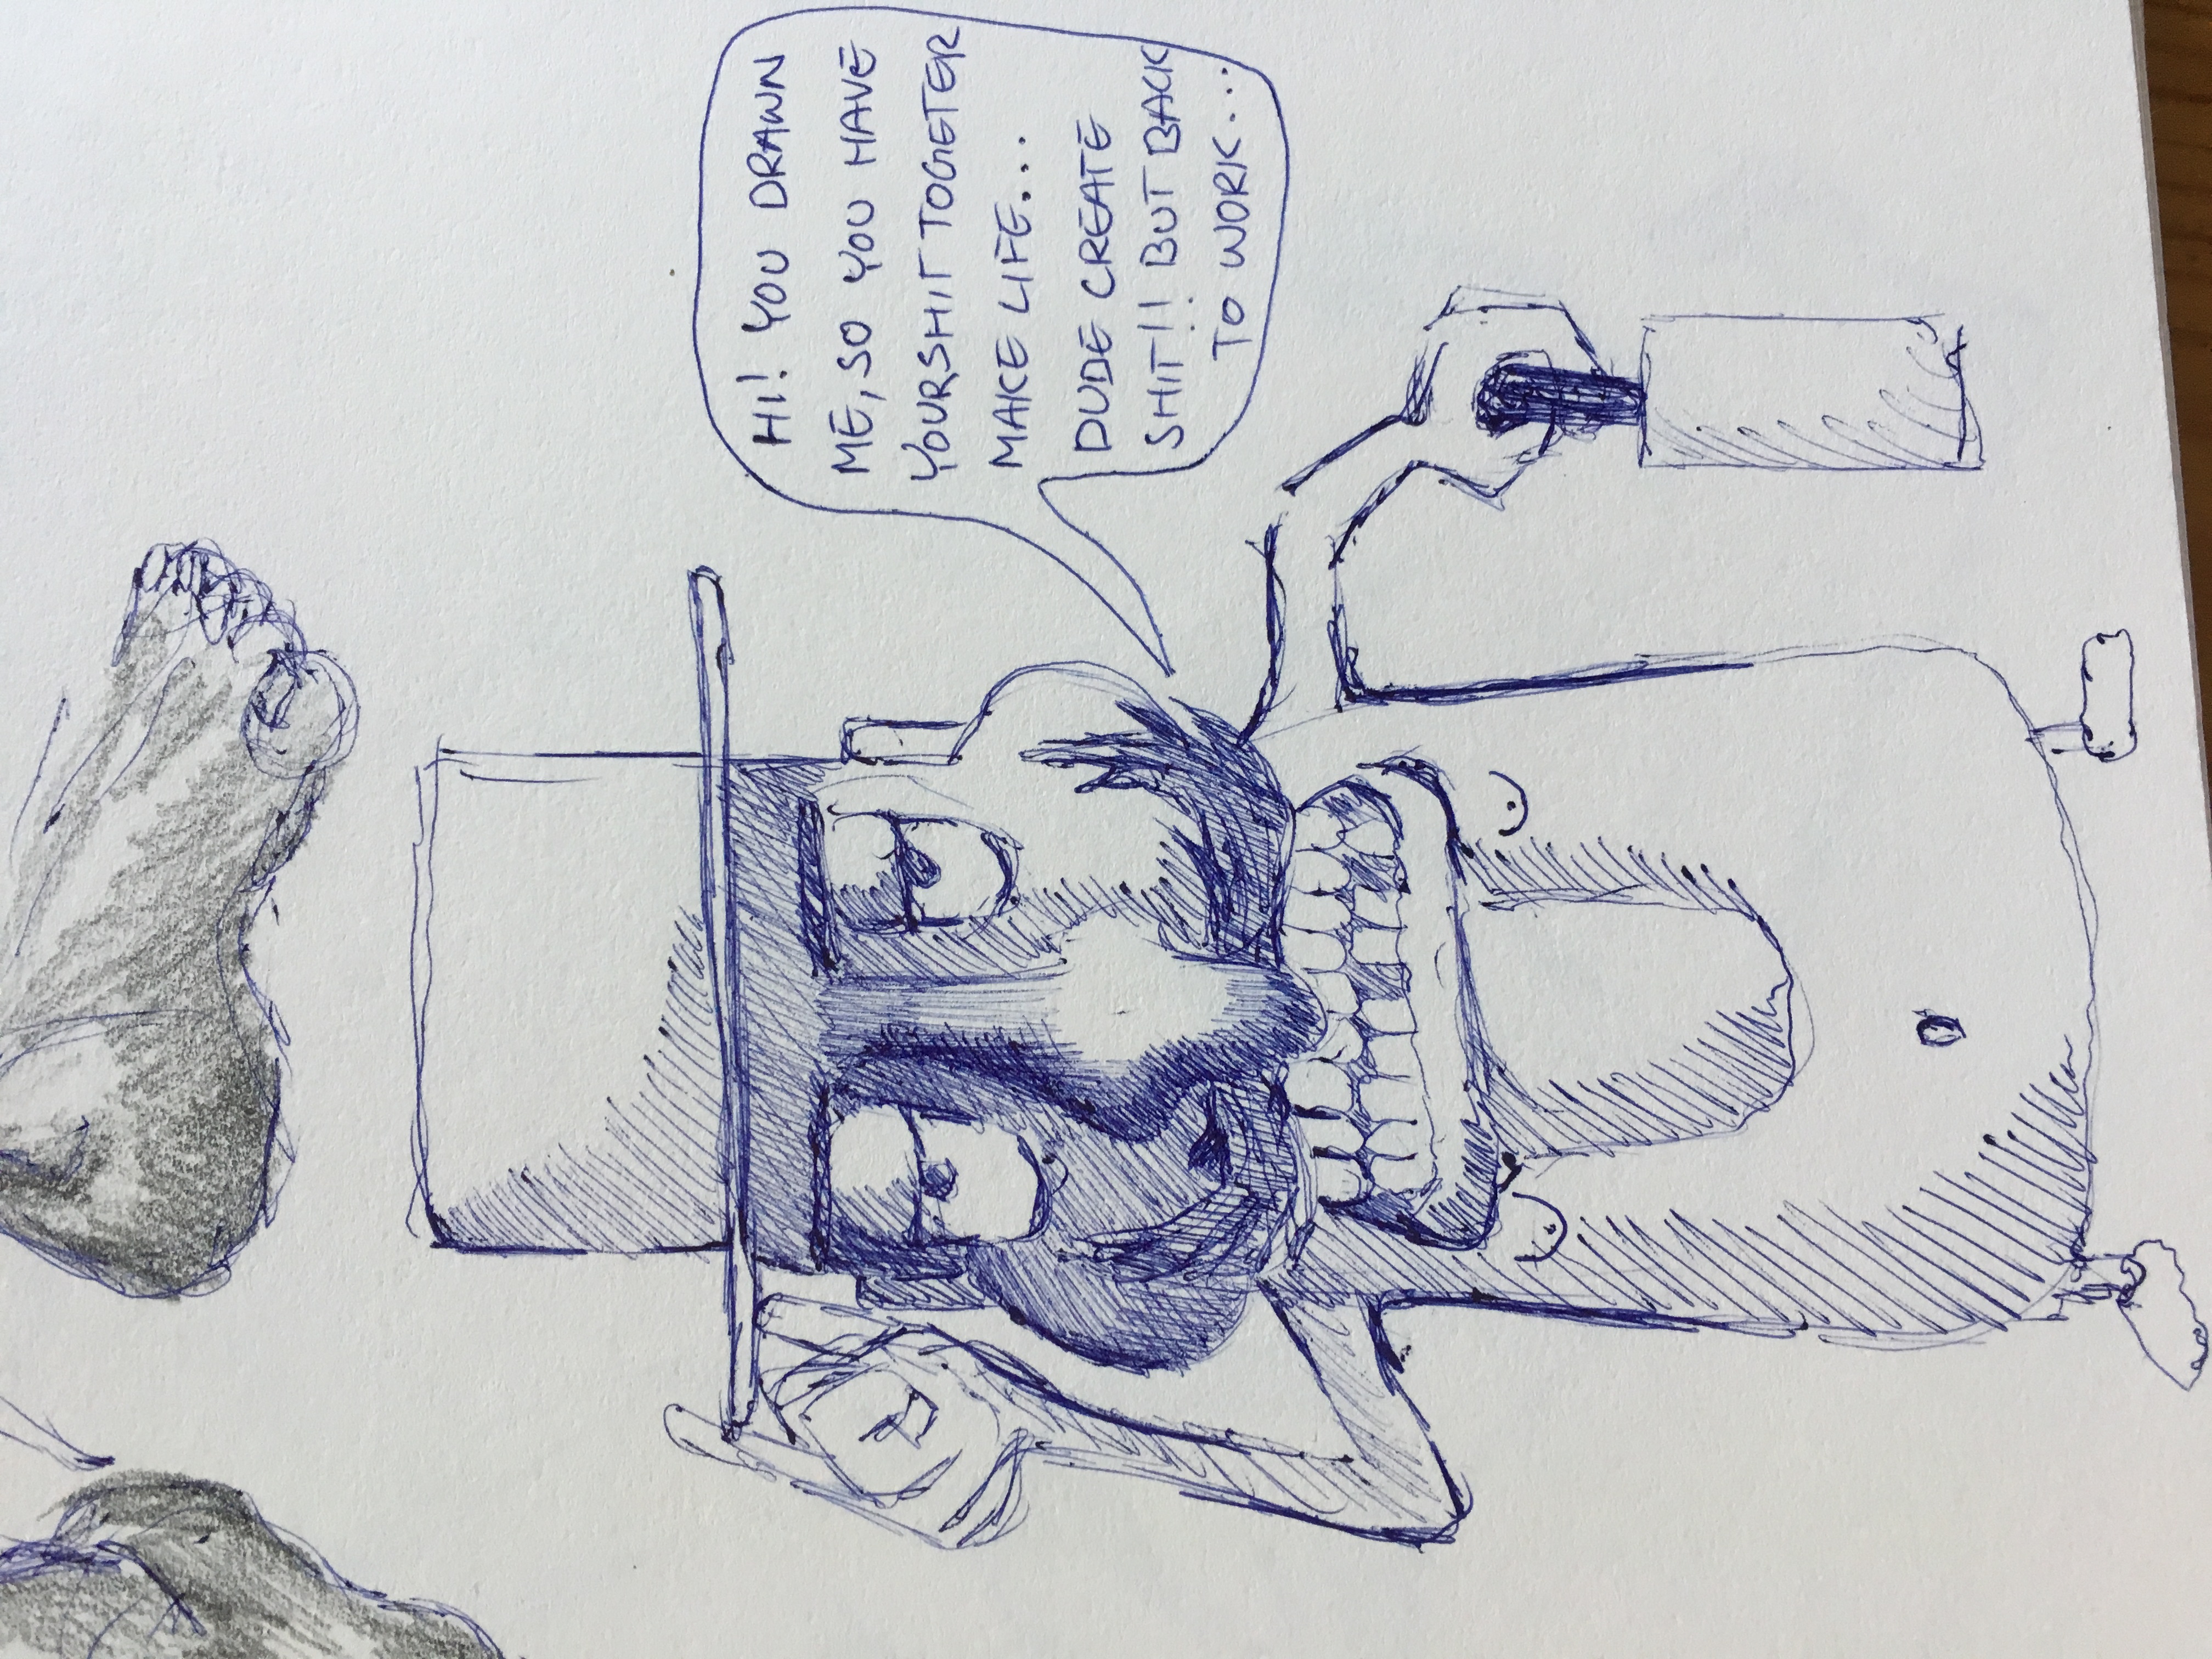 HI! YOU DRAWN
ME, SO YOU HAVE
YOUR SHIT TOGETER
MAKE LIFE...
DUDE CREATE
SHIT!! BUT BACK
TO WORK...